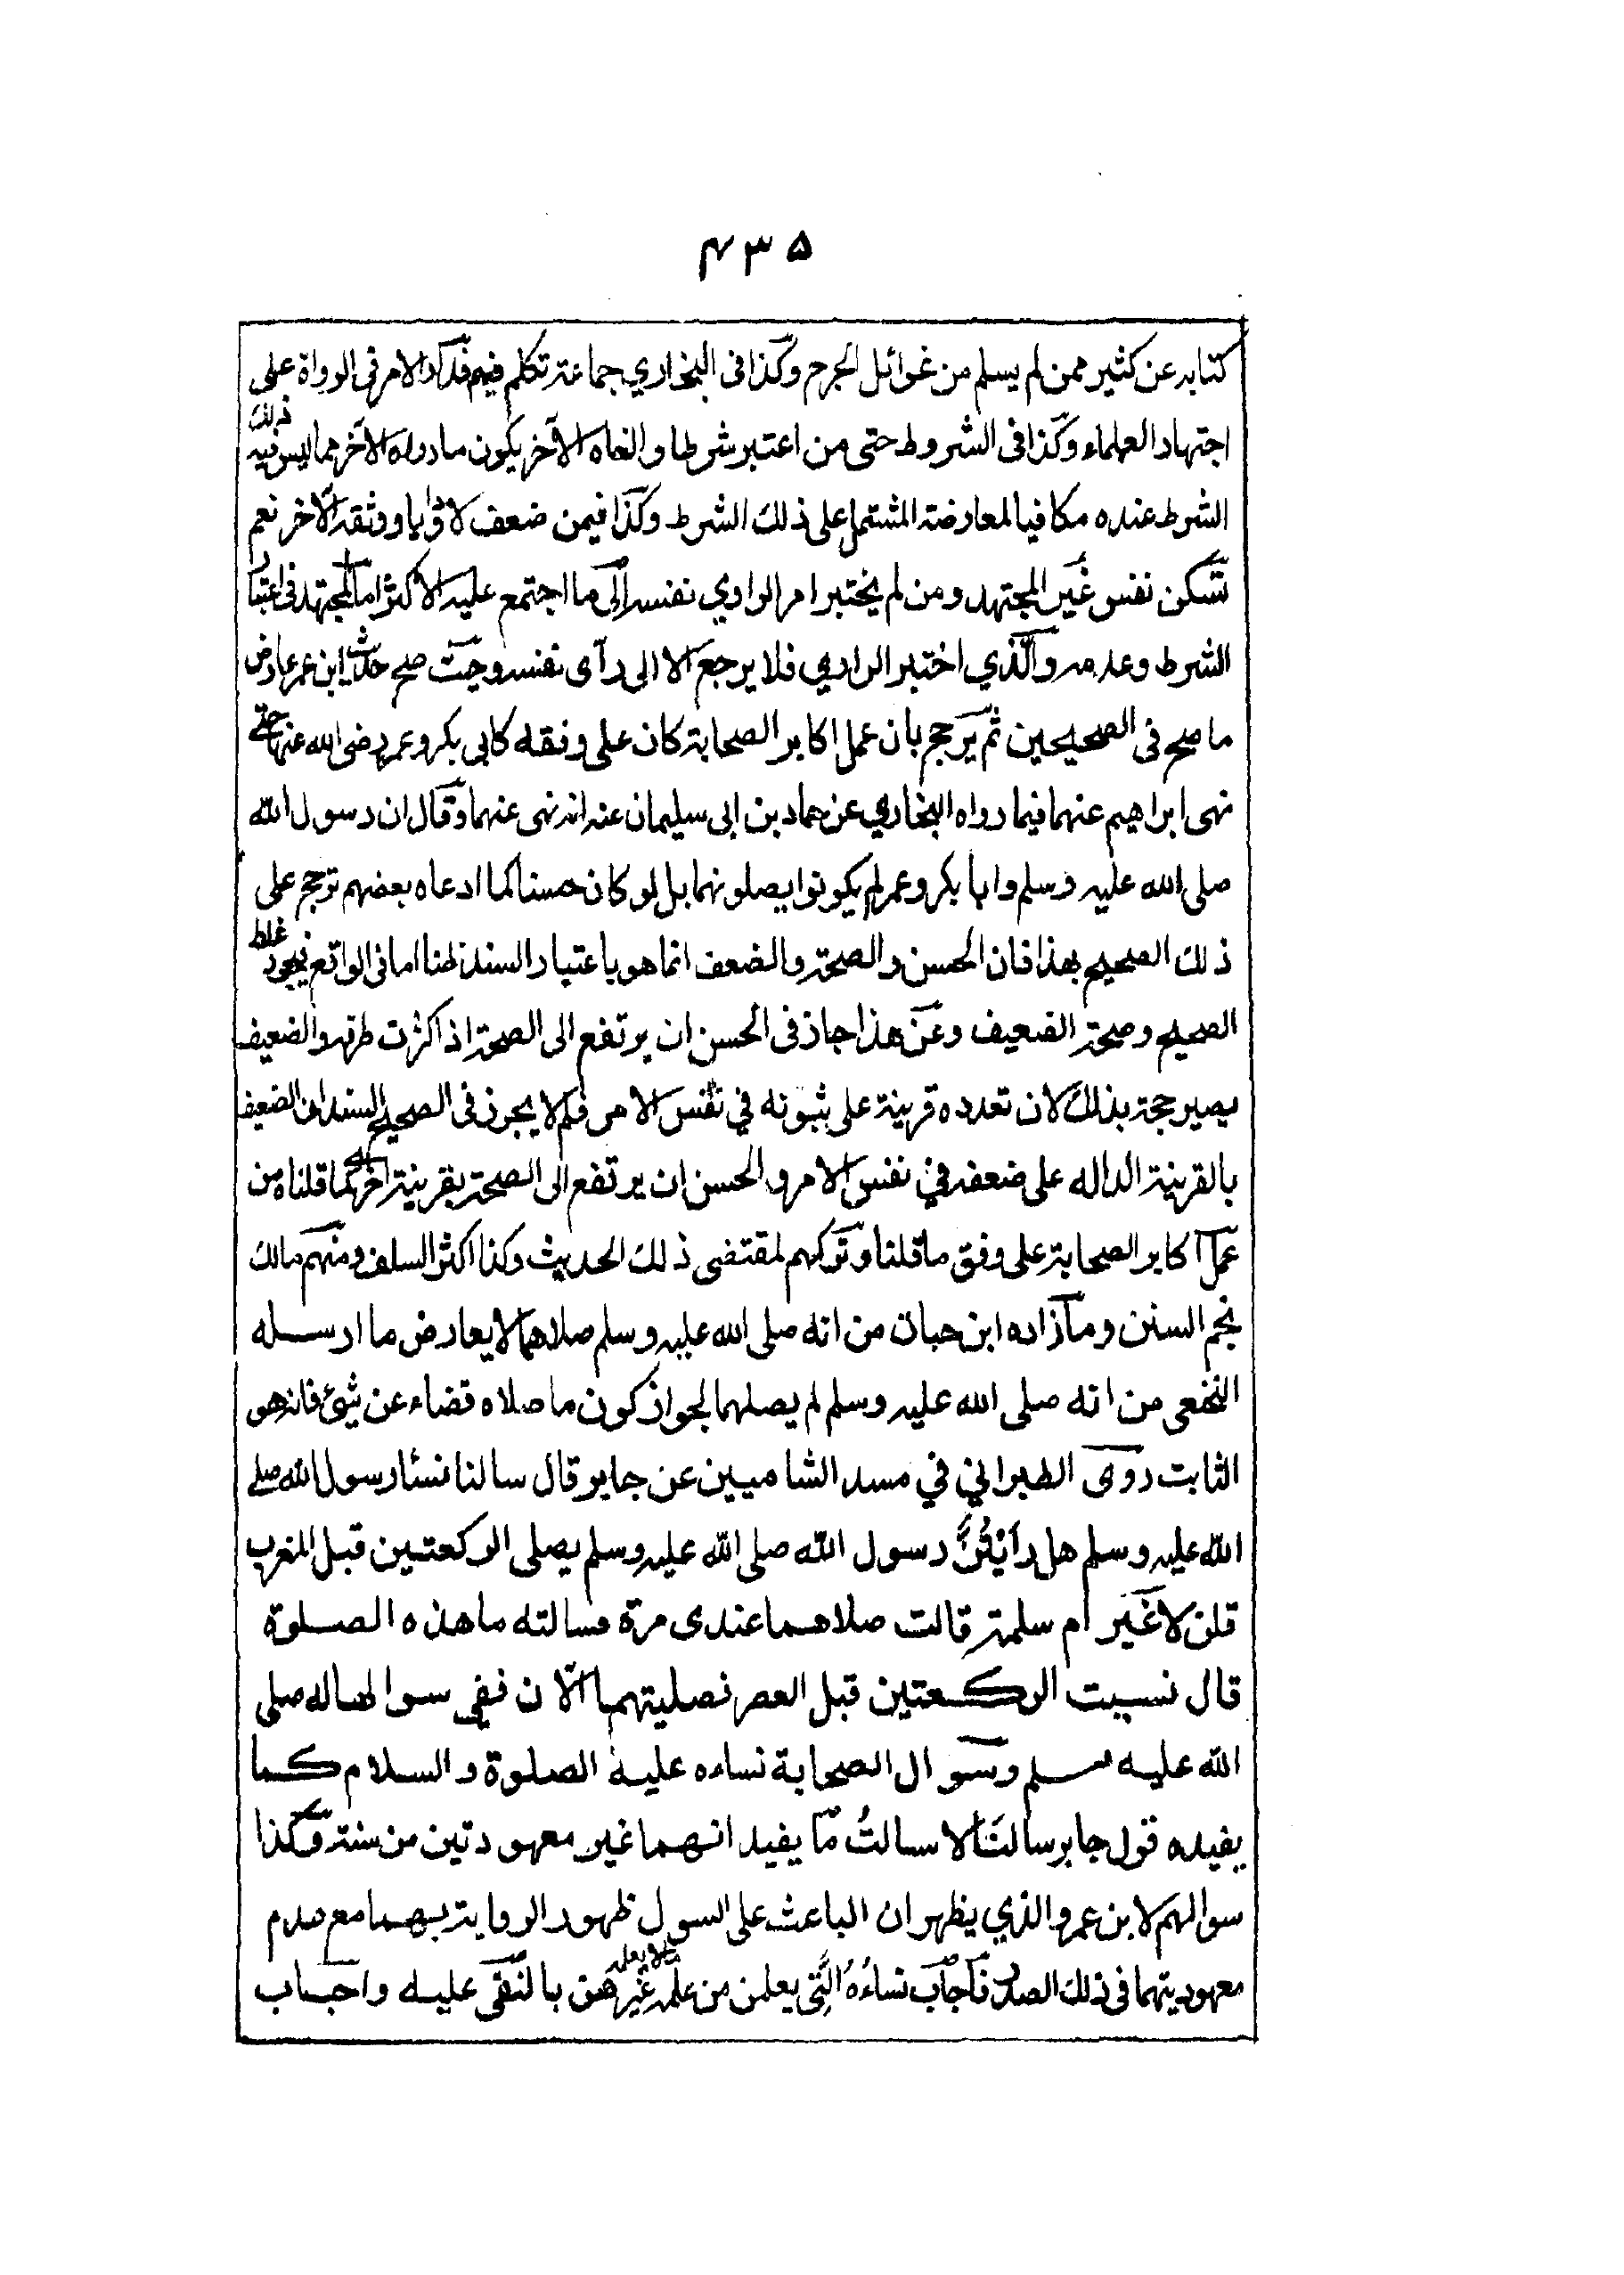 ۴۳۵
كتابه عن كثير ممن لم يسلم من غوائل الجرح وكذا فى البخاري جماعة تكلم فيهم فدار الامر فى الرواة على
اجتهاد العلماء وكذا فى الشروط حتى من اعتبر شرطا والغاه الآخر يكون ما رواه الآخر مما ليس فيه ذلك
الشرط عنده مكافيا لمعارضة المشتمل على ذلك الشرط وكذا فيمن ضعف راويا ووثقه الآخر نعم
تسكن نفس غير المجتهد ومن لم يختبر امر الراوي نفسه الى ما اجتمع عليه الاكثر اما المجتهد فى اعتبار
الشرط وعدمه والذي اختبر الراوي فلا يرجع الا الى رأى نفسه وحيث صح حديث ابن عمر عارض
ما صح فى الصحيحين ثم يرجح بان عمل اكابر الصحابة كان على وفقه كابى بكر وعمر رضى الله عنهما حتى
نهى ابراهيم عنهما فيما رواه البخاري عن حماد بن ابى سليمان عنه انه نهى عنهما وقال ان رسول الله
صلى الله عليه وسلم وابا بكر وعمر لم يكونوا يصلونهما بل لو كان حسنا كما ادعاه بعضهم ترجح على
ذلك الصحيح بهذا فان الحسن والصحة والضعف انما هو باعتبار السند ظنا اما فى الواقع فيجوز غلط
الصحيح وصحة الضعيف وعن هذا جاز فى الحسن ان يرتفع الى الصحة اذا كثرت طرقه والضعيف
يصير حجة بذلك لان تعدده قرينة على ثبوته في نفس الامر فلم لا يجوز فى الصحيح السند ان الضعف
بالقرينة الداله على ضعفه في نفس الامر والحسن ان يرتفع الى الصحة بقرينة اخرى كما قلناه من
عمل اكابر الصحابة على وفق ما قلنا وتركهم لمقتضى ذلك الحديث وكذا اكثر السلف ومنهم مالك
نجم السنن وما زاده ابن حبان من انه صلى الله عليه وسلم صلاهما لا يعارض ما ارسله
النخعى من انه صلى الله عليه وسلم لم يصلهما لجواز كون ما صلاه قضاء عن شئ فاته وهو
الثابت روى الطبراني في مسند الشاميين عن جابر قال سالنا نساء رسول الله صلى
الله عليه وسلم هل رأيتن رسول الله صلى الله عليه وسلم يصلى الركعتين قبل المغرب
قلن لا غير ام سلمة قالت صلاهما عندى مرة فسالته ما هذه الصلوة
قال نسيت الركعتين قبل العصر فصليتهما الآن ففى سوالها له صلى
الله عليه وسلم وسوال الصحابة نساءه عليه الصلوة والسلام كما
يفيده قول جابر سالنا لا سالتُ ما يفيد انهما غير معهودتين من سنته وكذا
سوالهم لابن عمر والذي يظهر ان الباعث على السول ظهور الرواية بهما مع عدم
معهوديتهما فى ذلك الصدر فاجاب نساءُهُ التى يعلمن من علمه ما لا يعلمه غيرهن بالنفى عليه واجاب